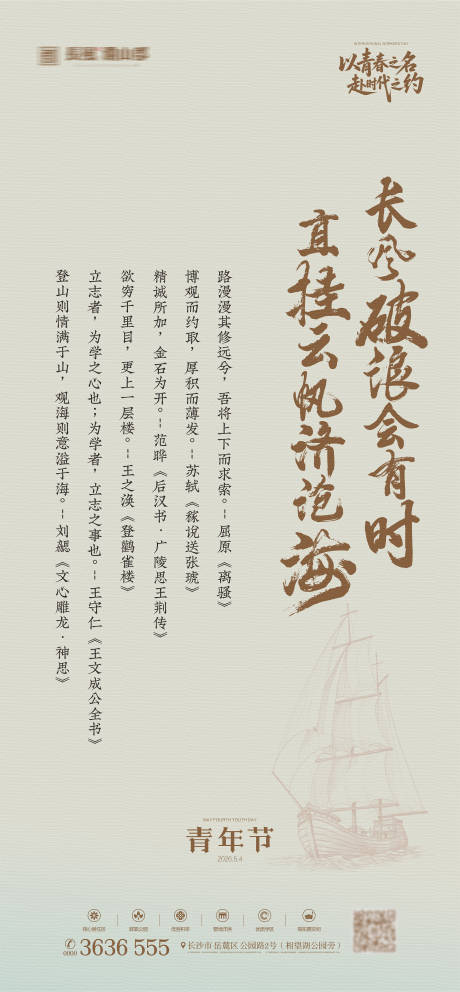 以青春之名
赴时代之约
长风破浪会有时
直挂云帆济沧海
路漫漫其修远兮，吾将上下而求索。-- 屈原《离骚》
博观而约取，厚积而薄发。-- 苏轼《稼说送张琥》
精诚所加，金石为开。-- 范晔《后汉书·广陵思王荆传》
欲穷千里目，更上一层楼。-- 王之涣《登鹳雀楼》
立志者，为学之心也；为学者，立志之事也。-- 王守仁《王文成公全书》
登山则情满于山，观海则意溢于海。-- 刘勰《文心雕龙·神思》
MAY FOURTH YOUTH DAY
青年节
2026.5.4
0000 3636 555
长沙市 岳麓区 公园路2号（相望湖公园旁）